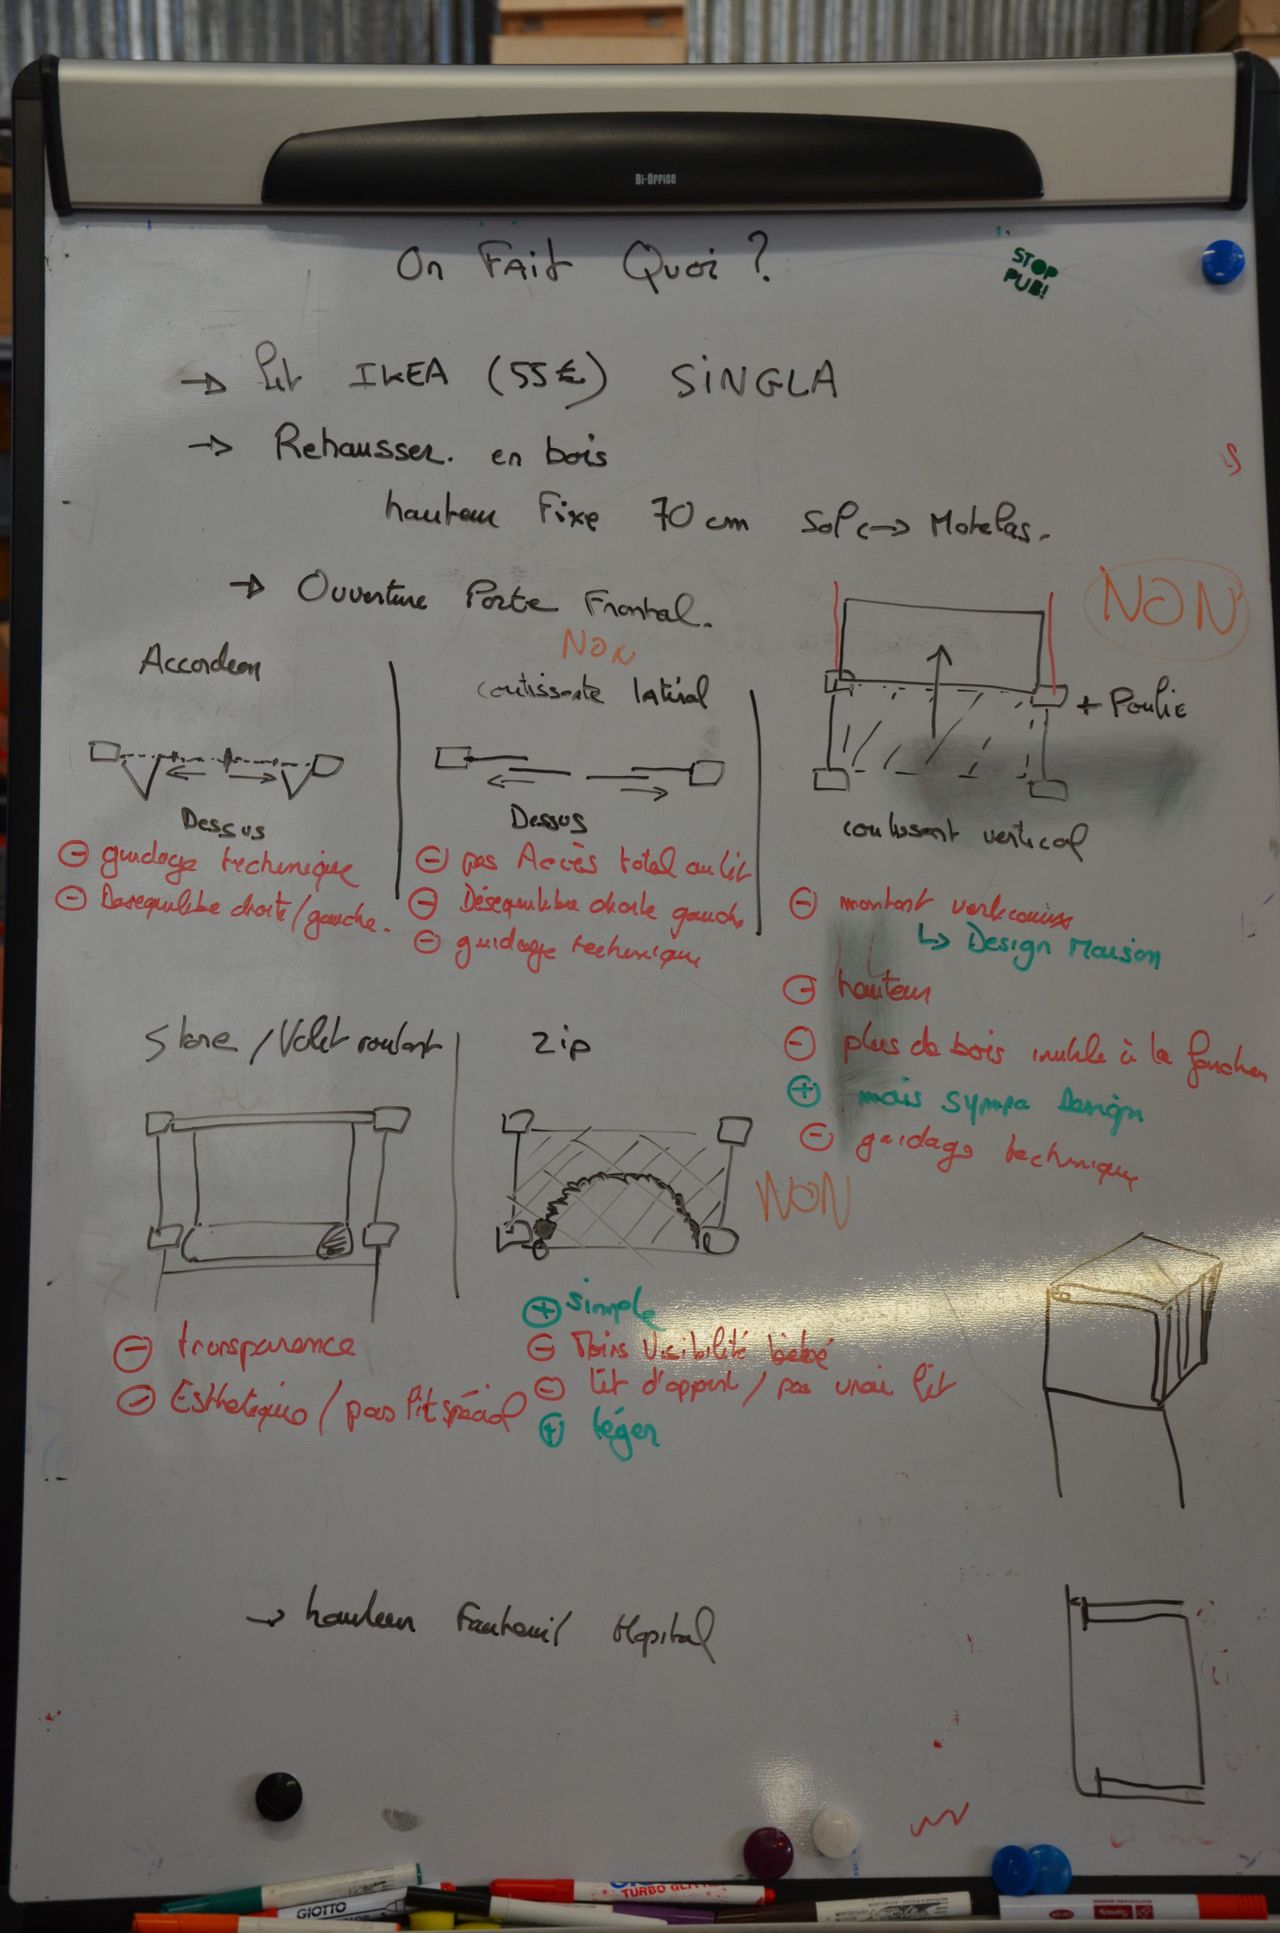 Bi-Office
On Fait Quoi ?
STOP
PUB!
→ Lit IKEA (55€) SiNGLA
→ Rehausser. en bois
hauteur Fixe 70 cm Sol ↔ Matelas.
→ Ouverture Porte Frontal.
NON
Accordeon
NON
coulissante latéral
+ Poulie
Dessus
Dessus
coulissant vertical
⊖ guidage technique
⊖ Desequilibre droite/gauche.
⊖ pas Accès total au lit
⊖ Déséquilibre droite gauche
⊖ guidage technique
⊖ montant verticaux
↳ Design Maison
⊖ hauteur
⊖ plus de bois inutile à la
⊕ mais sympa Design
⊖ guidage technique
Store / Volet roulant
Zip
NON
⊖ transparence
⊖ Esthetique / pas lit spécial
⊕ simple
⊖ Moins Visibilité bébé
⊖ Lit d'appoint / pas vrai lit
⊕ léger
→ hauteur Fauteuil Hopital
GIOTTO
TURBO